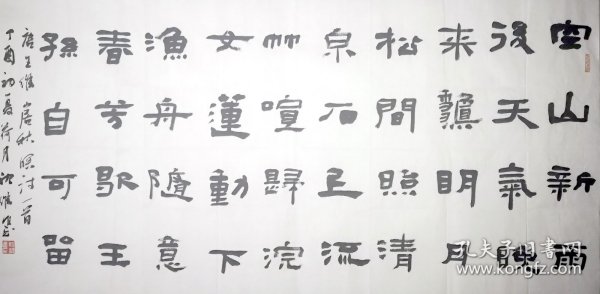 空山新雨
後天氣晚
来龝明月
松間照清
泉石上流
竹喧歸浣
女蓮動下
漁舟隨意
春芳歇王
孫自可留
唐王維山居秋暝詩一首
丁酉初夏荷月
孔夫子旧书网
www.kongfz.com